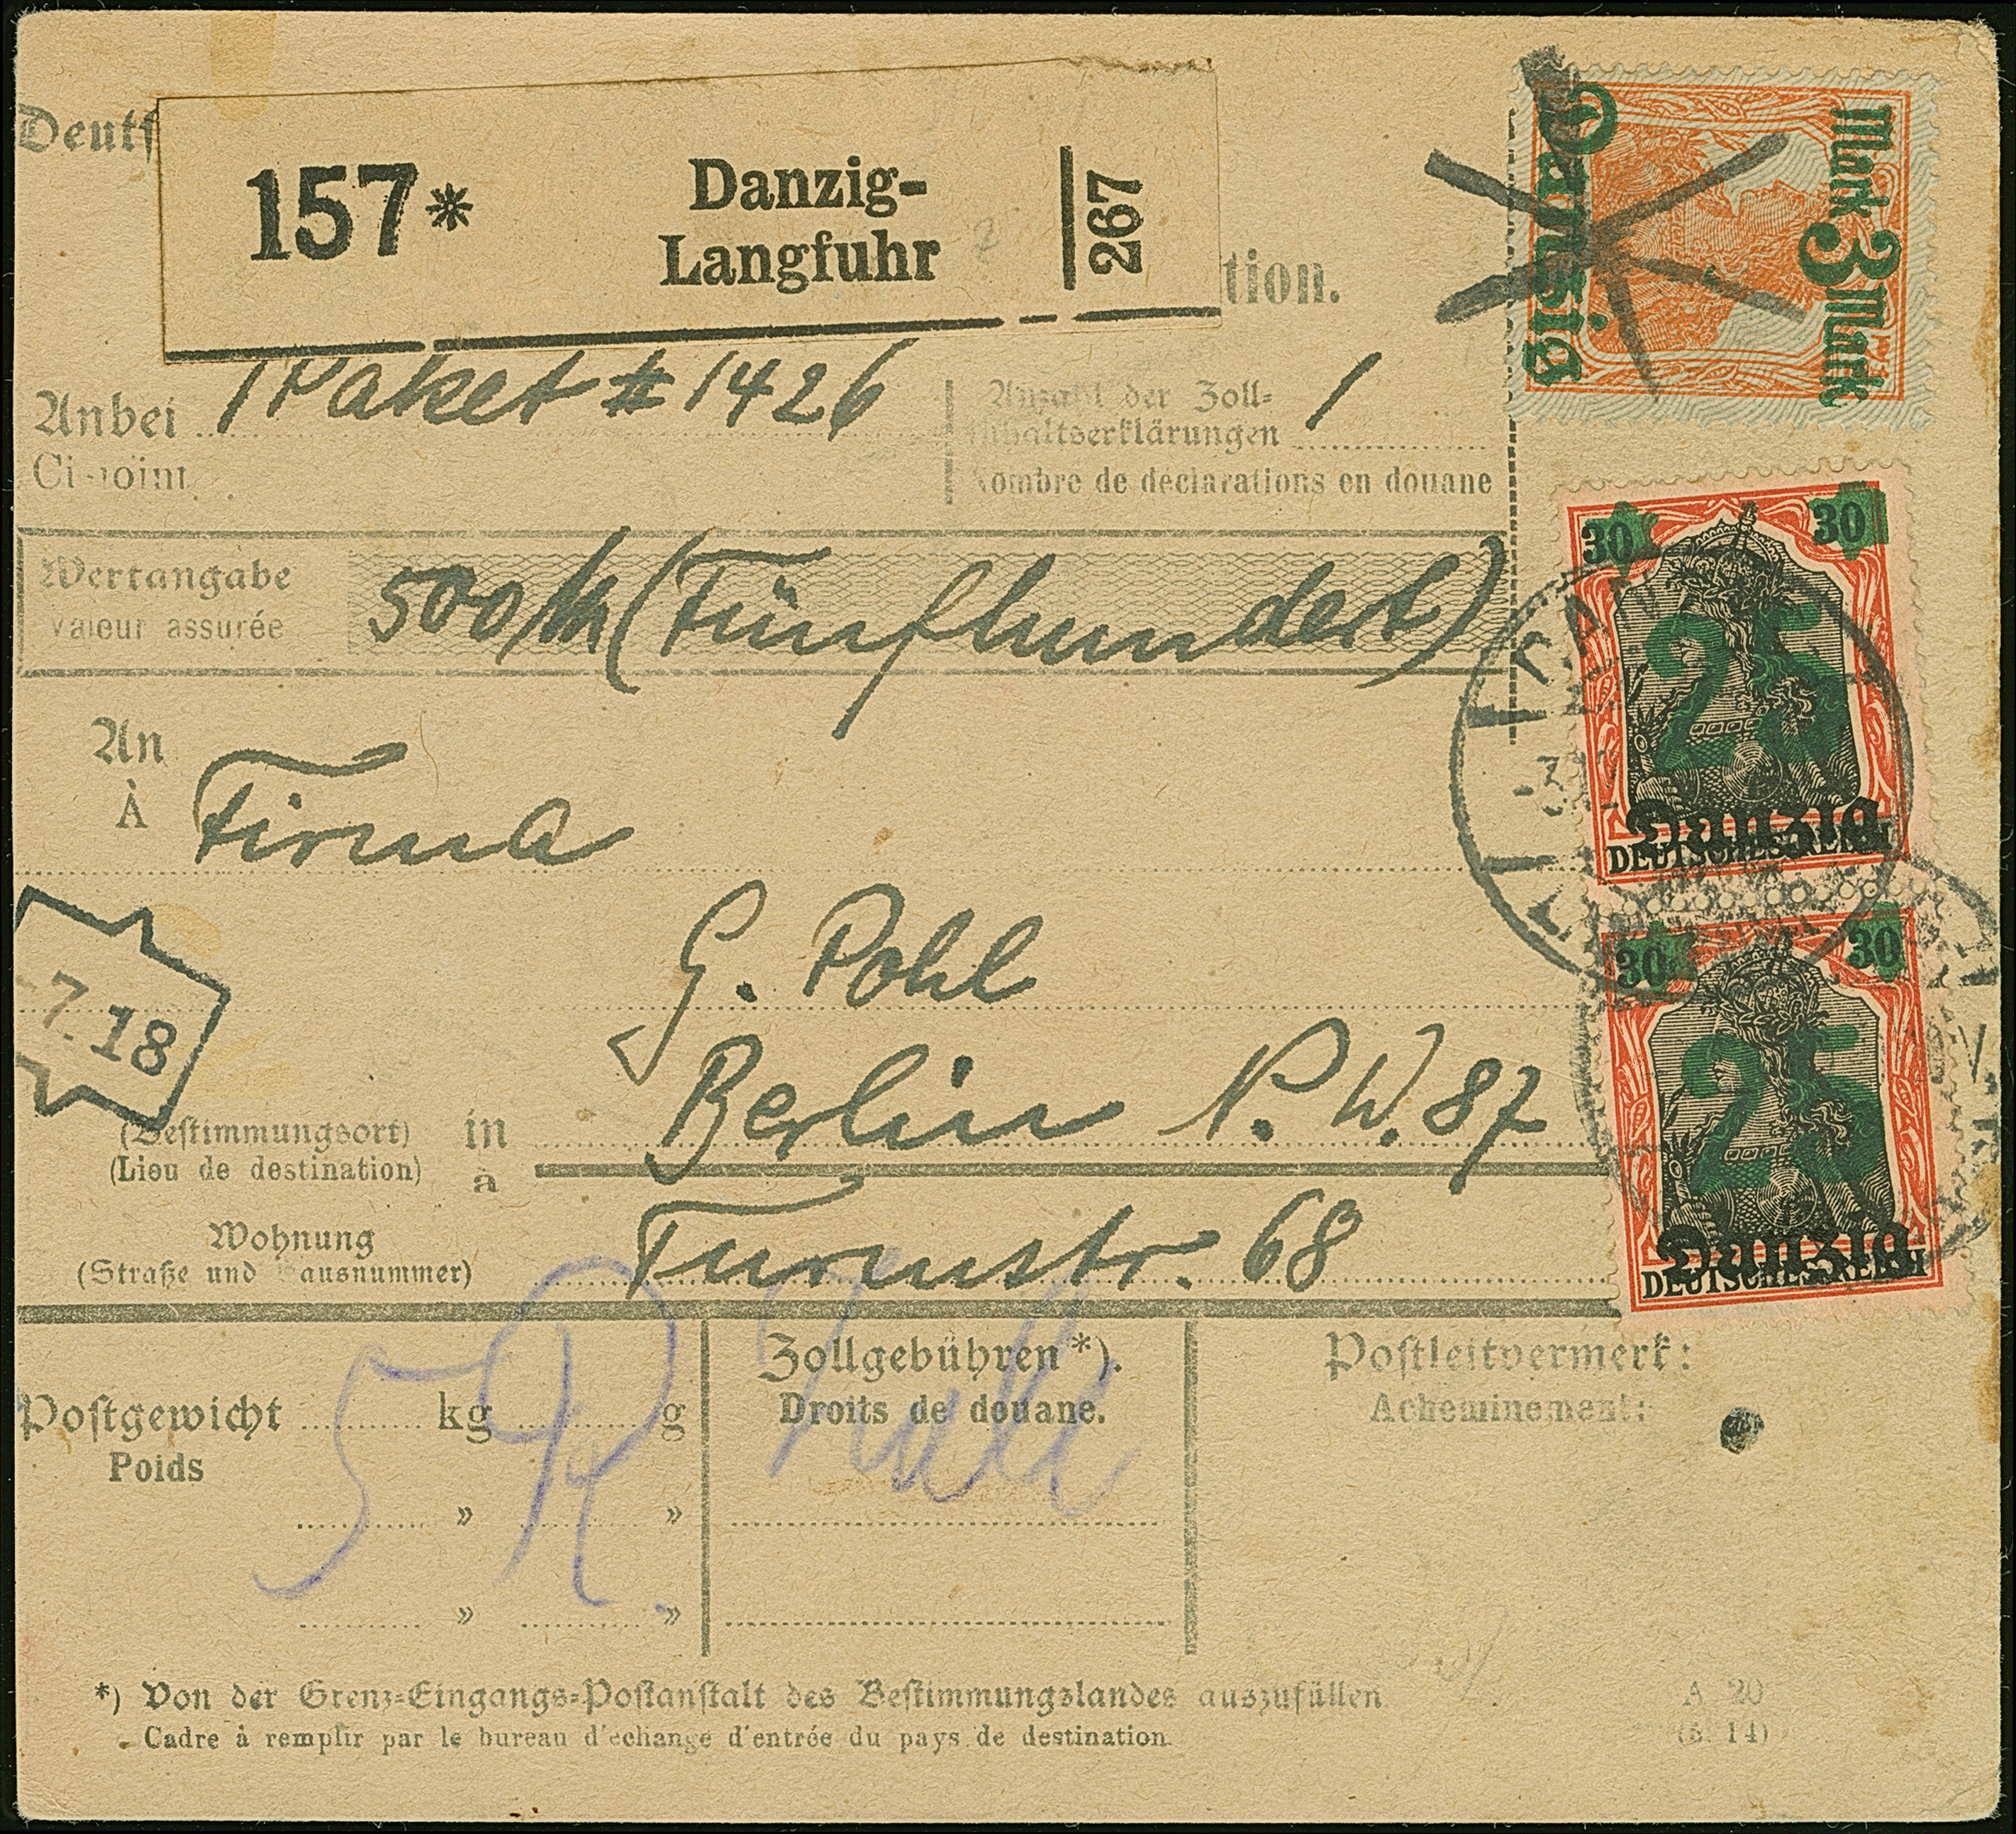 Deutſ
157*
Danzig-
Langfuhr
267
tion.
Mark 3 Mark
Danzig
Anbei 1 Paket # 1426
Ci-joint
Anzahl der Zoll-
Inhaltserklärungen 1
Nombre de déclarations en douane
Wertangabe
Valeur assurée
500 M (Fünfhundert)
30 30
25
Danzig
DEUTSCHES REICH
30 30
25
Danzig
DEUTSCHES REICH
An
À
Firma
G. Pohl
7.18
(Beſtimmungsort) in
(Lieu de destination) à
Berlin N. W. 87
Wohnung
(Straße und Hausnummer)
Turmstr. 68
Poſtgewicht kg g
Poids
5
» »
» »
Zollgebühren*).
Droits de douane.
Poſtleitvermerk:
Acheminement:
*) Von der Grenz-Eingangs-Poſtanſtalt des Beſtimmungslandes auszufüllen
Cadre à remplir par le bureau d'échange d'entrée du pays de destination.
A 20
(5. 14)